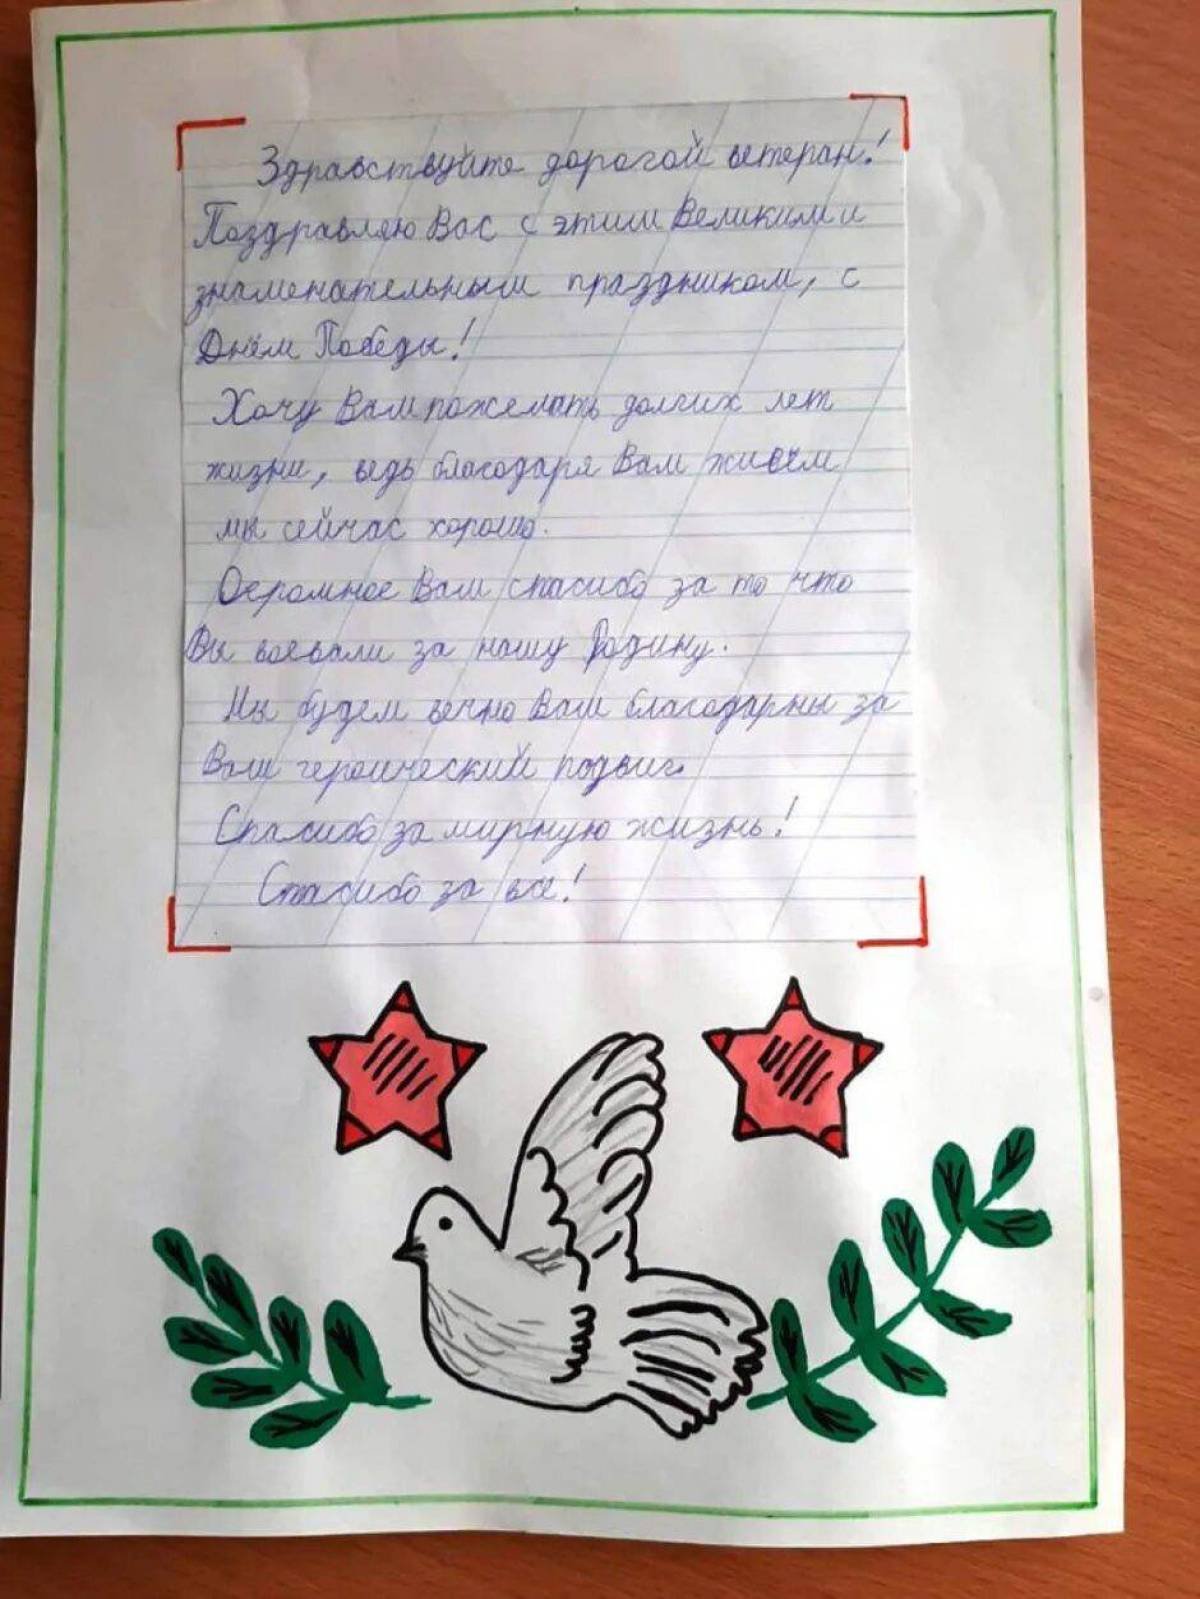 Здравствуйте дорогой ветеран!
Поздравляю Вас с этим Великим и
знаменательным праздником, с
Днём Победы!
Хочу Вам пожелать долгих лет
жизни, ведь благодаря Вам живём
мы сейчас хорошо.
Огромное Вам спасибо за то что
Вы воевали за нашу Родину.
Мы будем вечно Вам благодарны за
Ваш героический подвиг.
Спасибо за мирную жизнь!
Спасибо за всё!